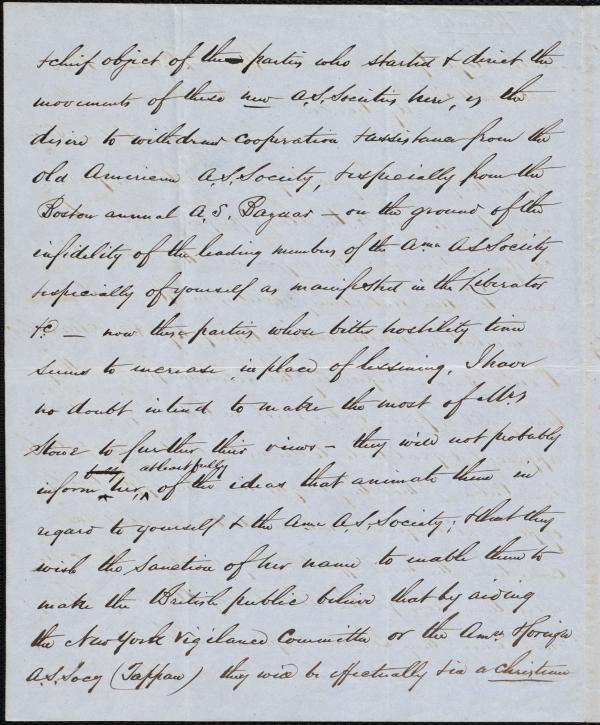 & chief object of the parties who started & direct the
movements of these new A.S. Societies here, is the
desire to withdraw cooperation & assistance from the
old American A.S. Society, & especially from the
Boston annual A.S. Bazaar – on the ground of the
infidelity of the leading members of the Amn A S Society
& especially of yourself as manifested in the Liberator
&c – now these parties whose bitter hostility time
seems to increase, in place of lessening, I have
no doubt intend to make the most of Mrs
Stowe to further their views – they will not probably
at least fully
inform her, of the ideas that animate them in
regard to yourself & the Ame A.S. Society; & that they
wish the sanction of her name to enable them to
make the British public believe that by aiding
the New York Vigilance Committee or the Amn & foreign
A.S. Socy (Tappan) they will be effectually & in a Christian